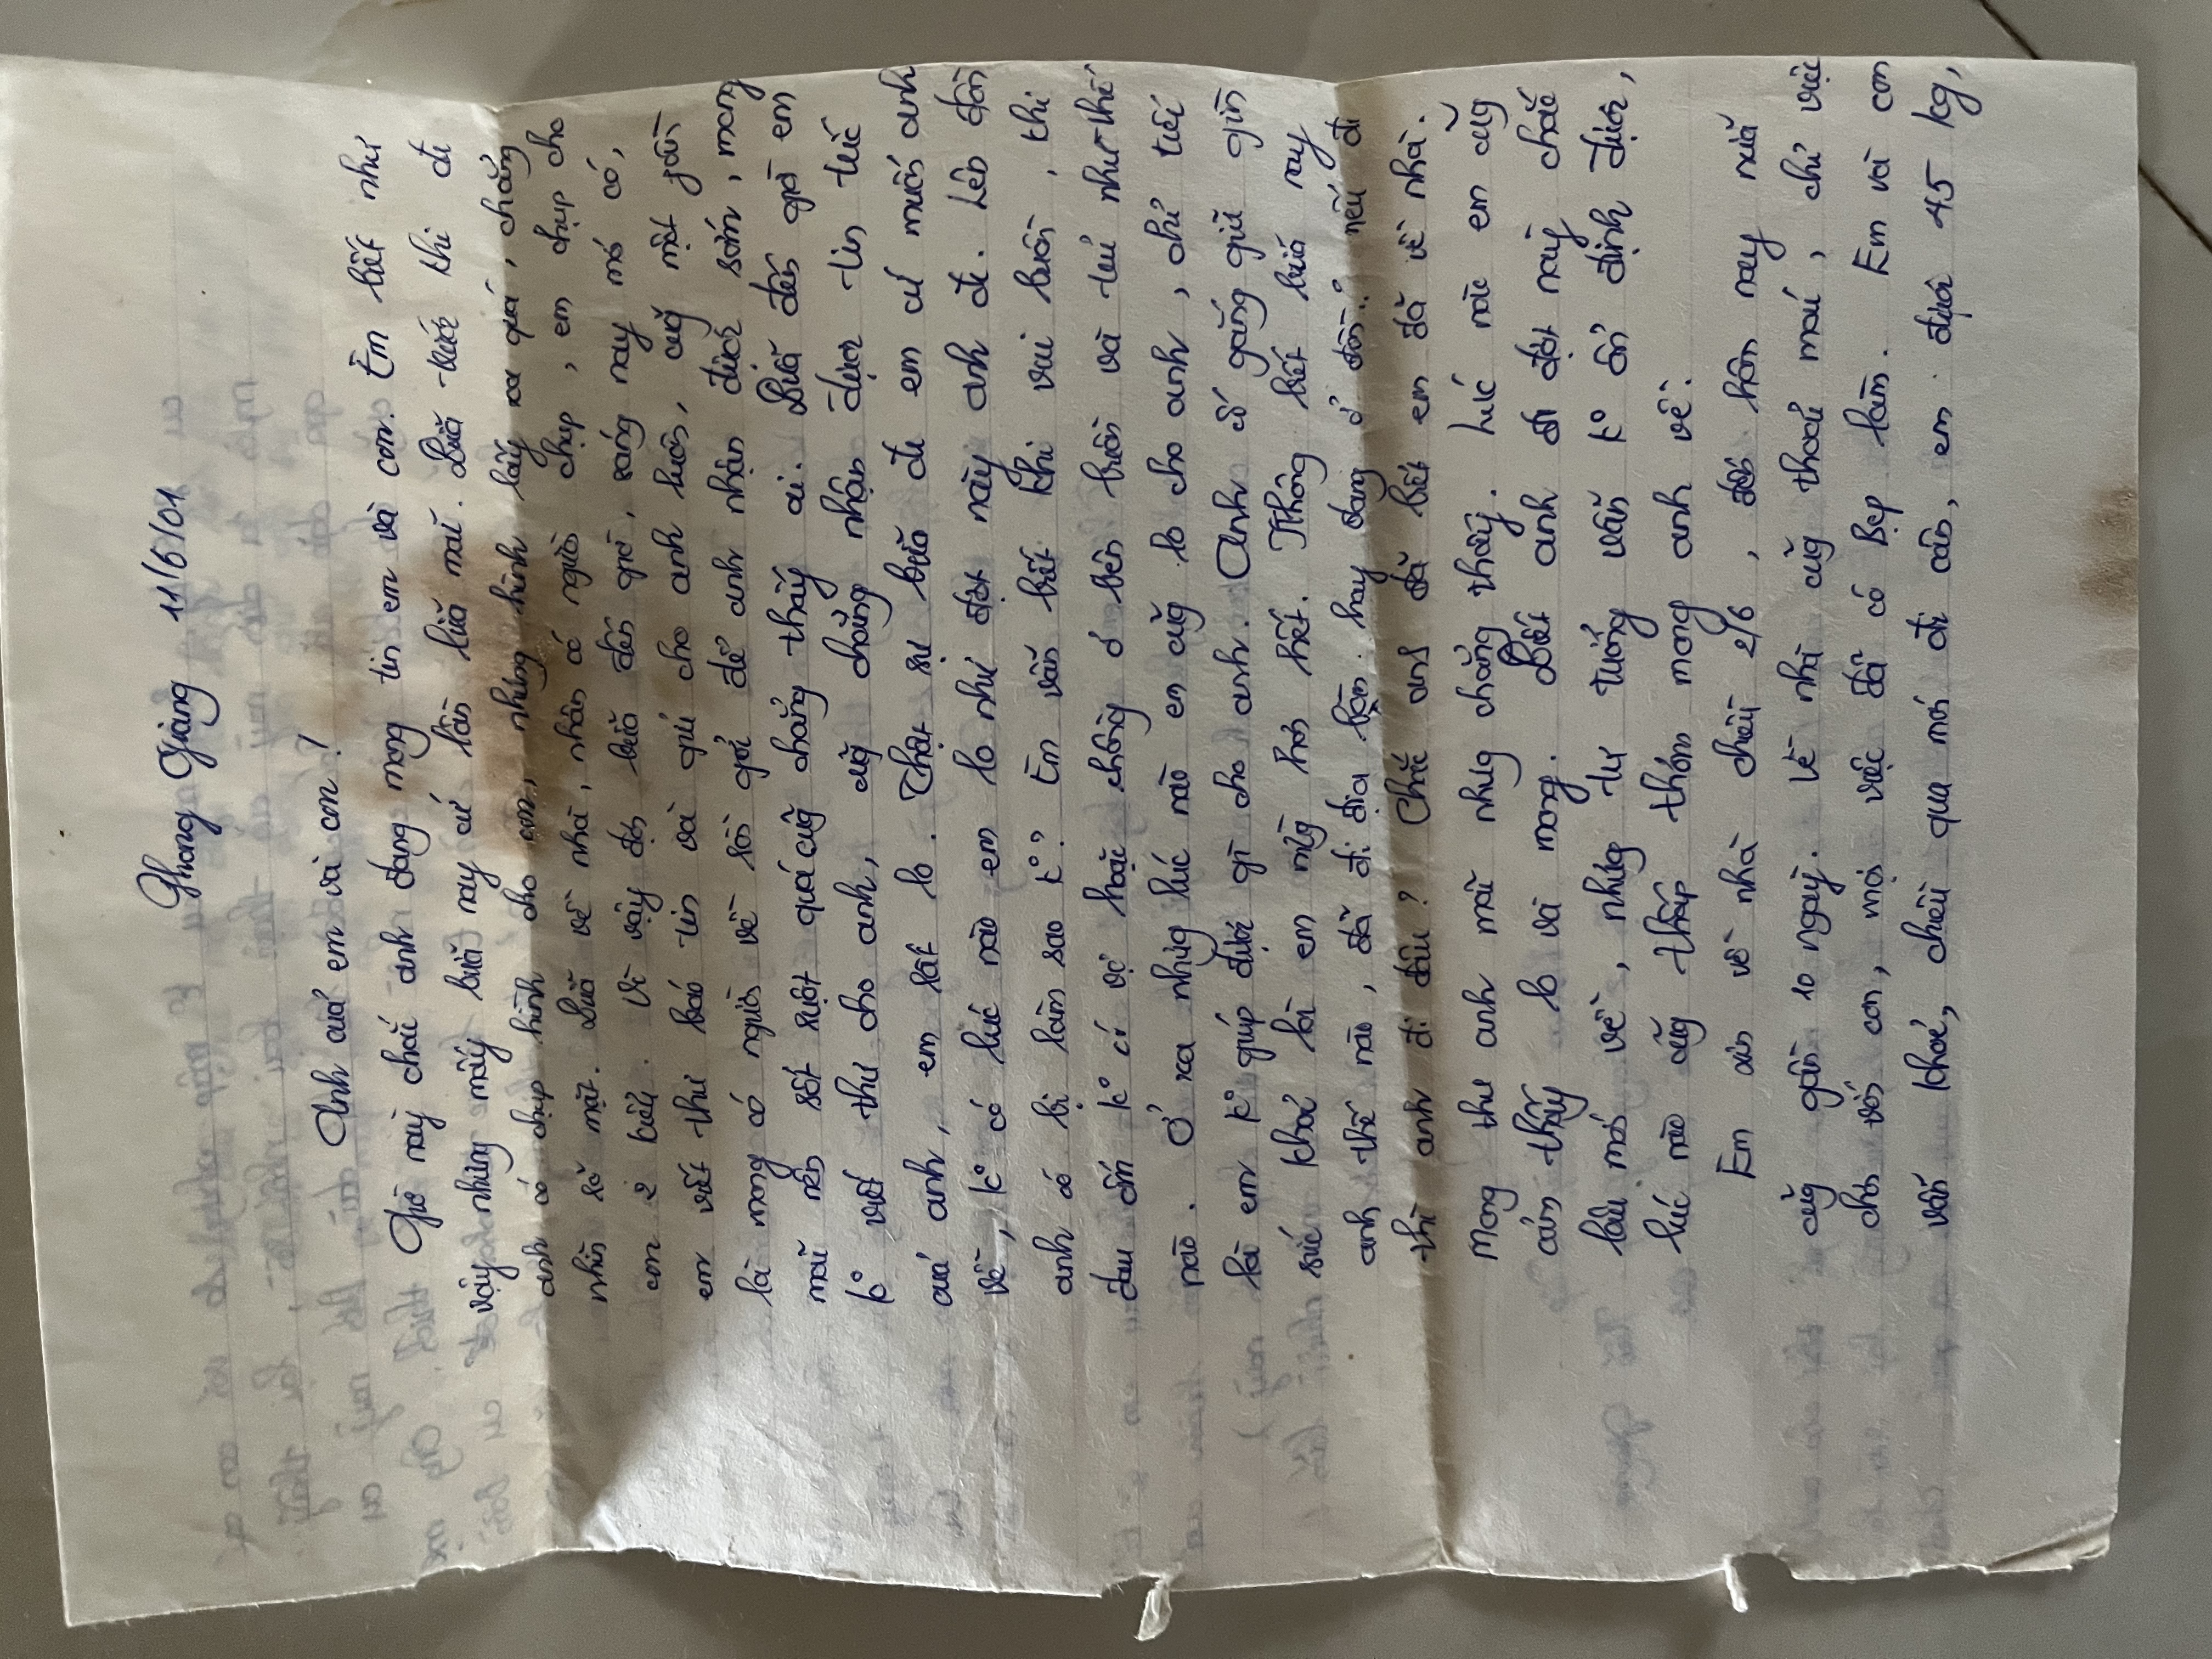 Phong Giàng 11/6/01
Anh của em và con !
Giờ này chắc anh đang mong tin em và con. Em biết như
vậy nhưng mấy bữa nay cứ lần lữa mãi. Bữa trước khi đi
anh có chụp hình cho con, nhưng hình lấy xa quá, chẳng
nhìn rõ mặt. Bữa về nhà, nhân có người chụp, em chụp cho
con 2 kiểu. Vì vậy đợi bữa đến giờ, sáng nay mới có,
em viết thư báo tin và gửi cho anh luôn, cũg một phần
là mong có người về rồi gởi để anh nhận được sớm, mong
mãi nên sốt ruột quá cũg chẳng thấy ai. Bữa đến giờ em
ko viết thư cho anh, cũg chẳng nhận được tin tức
của anh, em rất lo. Thật sự bữa đi em cứ muốn anh
về, ko có lúc nào em lo như đợt này anh đi. Lên đồn
anh có bị làm sao ko? Em vẫn biết khi vui buồn, khi
đau ốm ko có vợ hoặc chồng ở bên buồn và tủi như thế
nào. Ở xa nhưg lúc nào em cũg lo cho anh, chỉ tiếc
là em ko giúp được gì cho anh. Anh cố gắng giữ gìn
sức khoẻ là em mừg hơn hết. Không biết bữa nay
anh thế nào, đã đi địa bàn hay đang ở đồn? nếu đi
thì anh đi đâu? Chắc anh đã biết em đã về nhà.
Mong thư anh mãi nhưg chẳng thấy. Lúc nào em cũg
cảm thấy lo và mong. Biết anh đi đợt này chắc
lâu mới về, nhưg tư tưởng vẫn ko ổn định được,
lúc nào cũg thấp thỏm mong anh về.
Em xin về nhà chiều 2/6, đến hôm nay nữa
cũg gần 10 ngày. Về nhà cũg thoải mái, chỉ việc
chơi với con, mọi việc đã có Bẹp làm. Em và con
vẫn khoẻ, chiều qua mới đi cân, em được 45 kg,